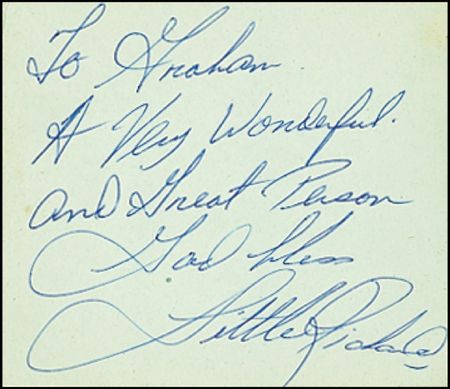 To Graham
A Very Wonderful.
and Great Person
God bless
Little Richard